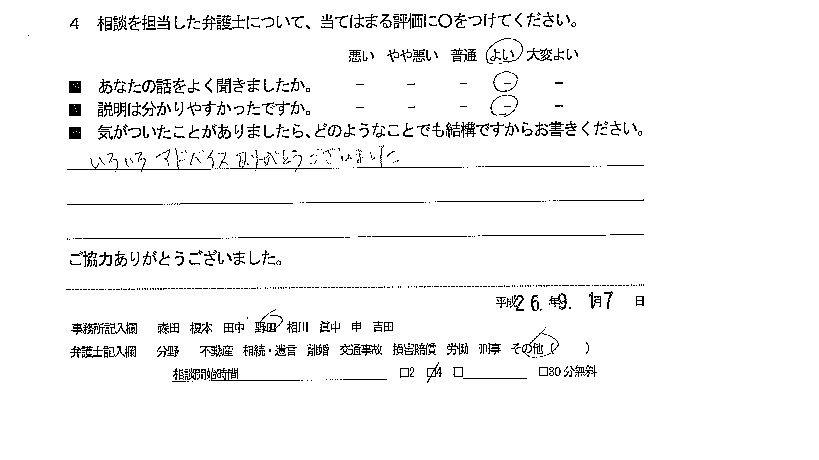 4 相談を担当した弁護士について、当てはまる評価に○をつけてください。
悪い やや悪い 普通 よい 大変よい
■ あなたの話をよく聞きましたか。 － － － － －
■ 説明は分かりやすかったですか。 － － － － －
■ 気がついたことがありましたら、どのようなことでも結構ですからお書きください。
いろいろアドバイスありがとうございました
ご協力ありがとうございました。
平成26.年9.月17日
事務所記入欄 森田 榎本 田中 野田 相川 眞中 申 吉田
弁護士記入欄 分野 不動産 相続・遺言 離婚 交通事故 損害賠償 労働 刑事 その他( )
相談開始時間 □2 □4 □ □30分無料